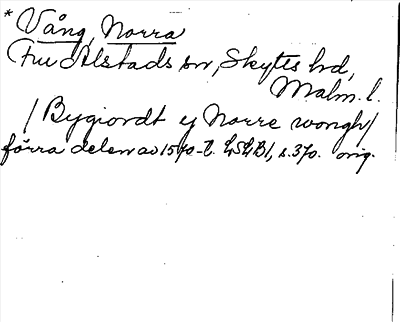 * Vång, Norra
Fru Alstads sn, Skytts hd,
Malm. l.
/ Bygiordt ij Norre wongh /
förra delen av 1570-t. LSHB1, s. 370. orig.